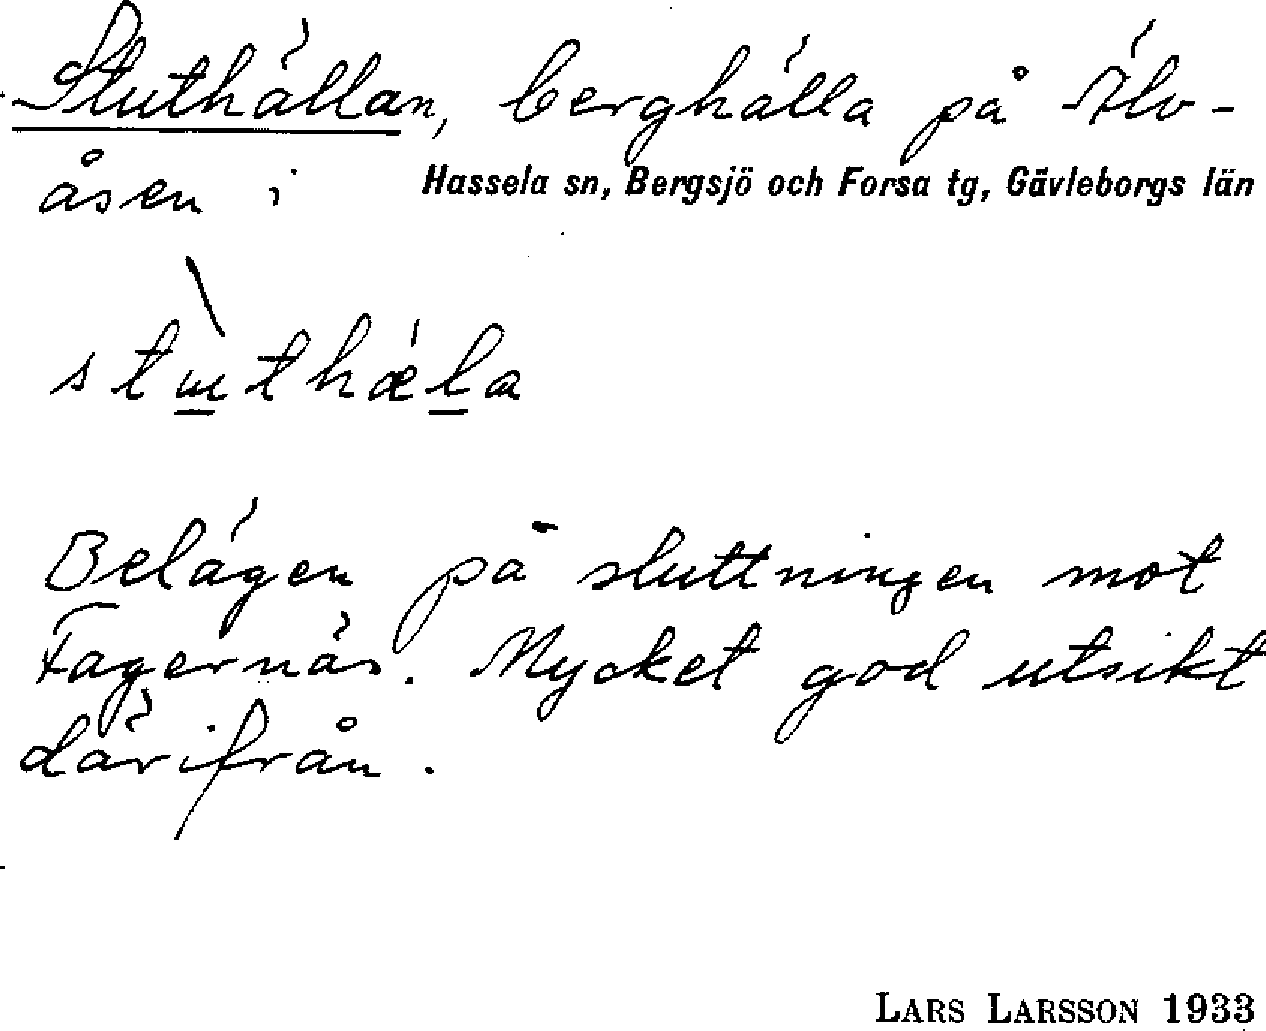 Stuthällan, berghälla på Älv-
åsen i Hassela sn, Bergsjö och Forsa tg, Gävleborgs län
Belägen på sluttningen mot
Fagernäs. Mycket god utsikt
därifrån.
LARS LARSSON 1933